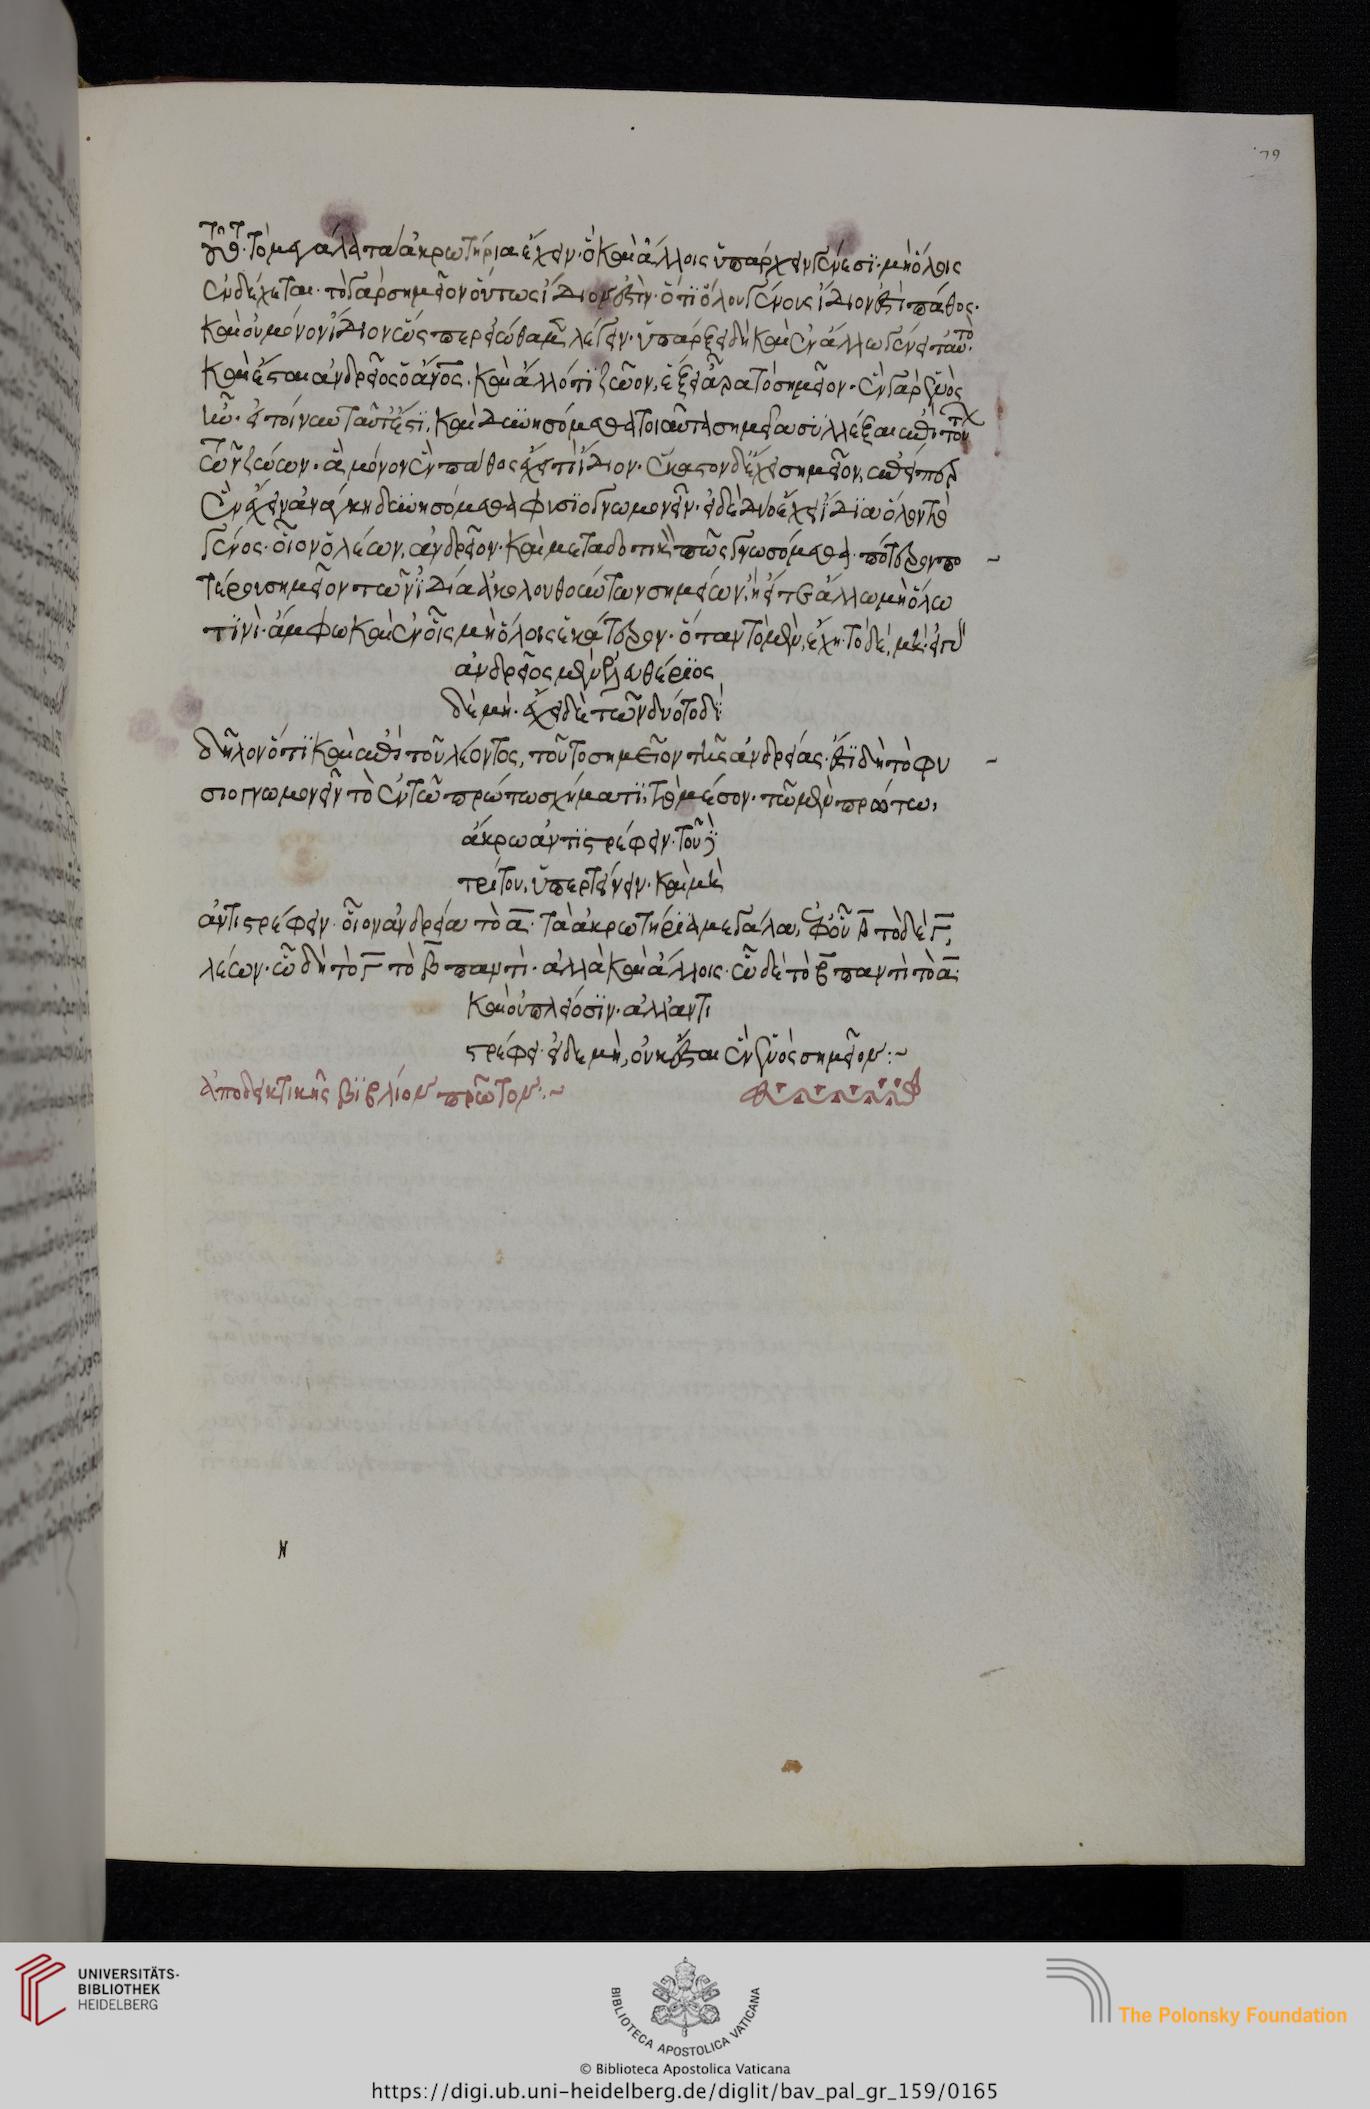 79
τὸ μεγάλα τὰ ἀκρωτήρια ἔχειν· ὃ καὶ ἄλλοις ὑπάρχειν γένεσι· μὴ ὅλοις
ἐνδέχεται· τὸ γὰρ σημεῖον οὕτως ἴδιόν ἐστιν· ὅτι ὅλου γένους ἴδιόν ἐστι πάθος·
καὶ οὐ μόνον ἴδιον ὥσπερ εἰώθαμεν λέγειν· ὑπάρξει δὴ καὶ ἐν ἄλλω γένει τοῦτο·
καὶ ἔσται ἀνδρεῖος ὁ ἄνος· καὶ ἄλλό τι ζῶον, ἕξει ἄρα τὸ σημεῖον· ἓν γὰρ ἑνὸς
ἦν· εἰ τοίνυν ταῦτ' ἐστὶ, καὶ δυνησόμεθα τοιαῦτα σημεῖα συλλέξαι ἐπὶ τούτων
τῶν ζώων· ἃ μόνον ἓν πάθος ἔχει τι ἴδιον· ἕκαστον δ' ἔχει σημεῖον, ἐπείπερ
ἓν ἔχειν ἀνάγκη δυνησόμεθα φυσιογνωμονεῖν· εἰ δὲ δύο ἔχει ἴδια ὅλον τὸ
γένος· οἷον ὁ λέων, ἀνδρεῖον· καὶ μεταδοτικὸν πῶς γνωσόμεθα· πότερον πο
τέρου σημεῖον τῶν ἰδία ἀκολουθούντων σημείων, ἢ εἰ ἄλλω μὴ ὅλω
τινὶ· ἄμφω καὶ ἐν οἷς μὴ ὅλοις ἑκάτερον· ὅταν τὸ μὲν, ἔχη· τὸ δὲ, μή· εἰ γὰρ
ἀνδρεῖος μὲν ἐλευθέριος
δὲ μή· ἔχει δὲ τῶν δύο τοδὶ
δῆλον ὅτι καὶ ἐπὶ τοῦ λέοντος, τοῦτο σημεῖον τῆς ἀνδρείας· ἔστι δὴ τὸ φυ
σιογνωμονεῖν τὸ ἐν τῶ πρώτω σχήματι, τῶ μέσον· τῶ μὲν πρώτω,
ἄκρω ἀντιστρέφειν· τοῦ δὲ
τρίτου, ὑπερτείνειν· καὶ μὴ
ἀντιστρέφειν· οἷον ἀνδρεία τὸ α· τὰ ἀκρωτήρια μεγάλα, ἐφ' οὗ β τὸ δὲ γ,
λέων· ὧ δὴ τὸ γ τὸ β παντὶ· ἀλλὰ καὶ ἄλλοις· ὧ δὲ τὸ β παντὶ τὸ α·
καὶ οὐ πλείοσιν· ἀλλ' ἀντι
στρέφει· εἰ δὲ μὴ, οὐκ ἔσται ἓν ἑνὸς σημεῖον:~
ἀποδεκτικῆς βιβλίον πρῶτον:~
N
UNIVERSITÄTS-
BIBLIOTHEK
HEIDELBERG
BIBLIOTECA APOSTOLICA VATICANA
The Polonsky Foundation
© Biblioteca Apostolica Vaticana
https://digi.ub.uni-heidelberg.de/diglit/bav_pal_gr_159/0165